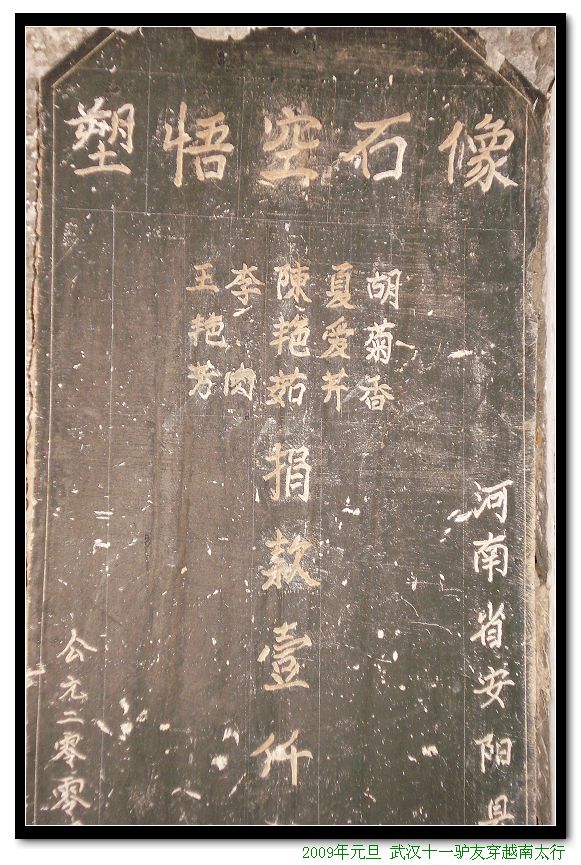 塑悟空石像
河南省安阳县
胡菊香
夏爱芹
陳艳茹
李肉
王艳芳
捐款壹仟
公元二零零
2009年元旦 武汉十一驴友穿越南太行